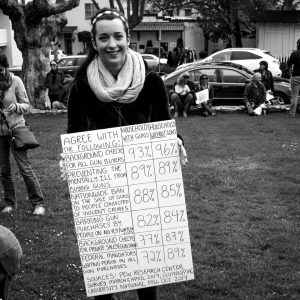 AGREE WITH THE FOLLOWING: HOUSEHOLDS WITH GUNS HOUSEHOLDS WITHOUT GUNS
BACKGROUND CHECK FOR ALL GUN BUYERS 93% 96%
PREVENTING THE MENTALLY ILL FROM BUYING GUNS 89% 89%
NATIONWIDE BAN IN THE SALE OF GUNS TO PEOPLE CONVICTED OF VIOLENT CRIMES 88% 85%
BARRING GUN PURCHASES BY PEOPLE ON NO FLY 82% 84%
BACKGROUND CHECK FOR PRIVATE SALES 77% 87%
FEDERAL MANDATORY WAITING PERIOD ON ALL GUN PURCHASES 72% 89%
SOURCES: PEW RESEARCH CENTER
SURVEY MARCH
UNIVERSITY NATIONAL POLL OCT 2017